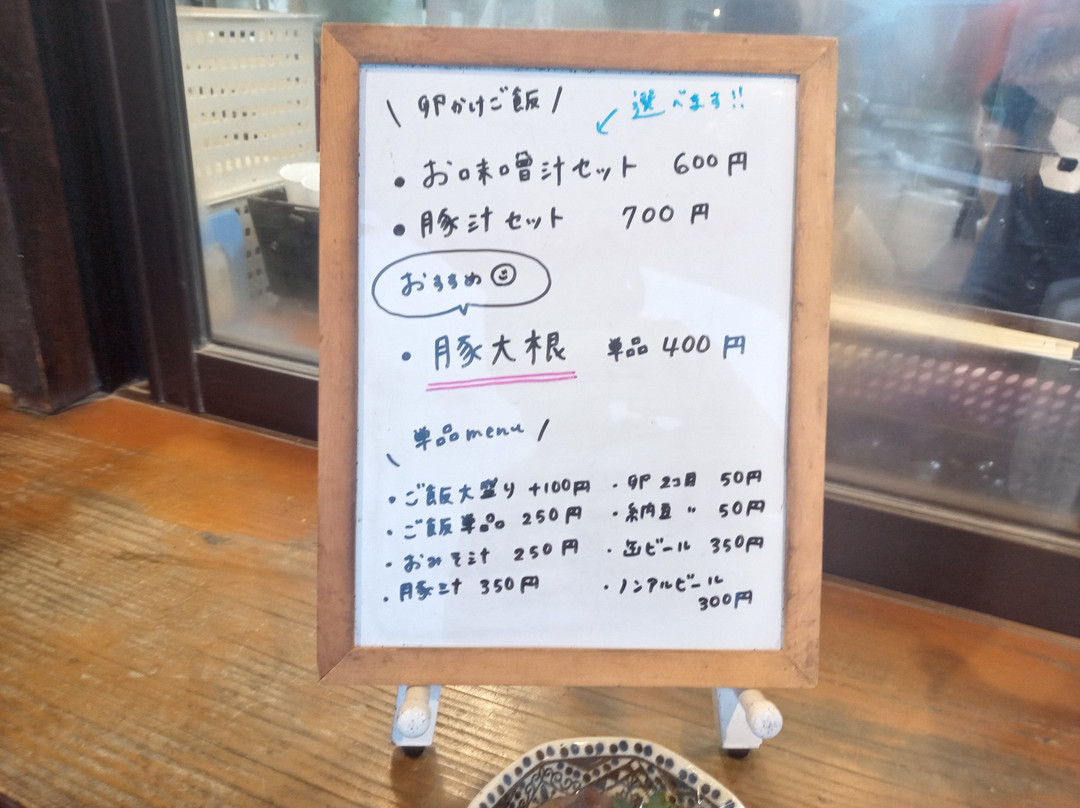 \ 卵かけご飯 /
↙ 選べます!!
• お味噌汁セット 600円
• 豚汁セット 700円
おすすめ☺
• 豚大根 単品 400円
\ 単品menu /
• ご飯大盛り +100円
• ご飯単品 250円
• おみそ汁 250円
• 豚汁 350円
• 卵 2コ目 50円
• 納豆 〃 50円
• 缶ビール 350円
• ノンアルビール
300円